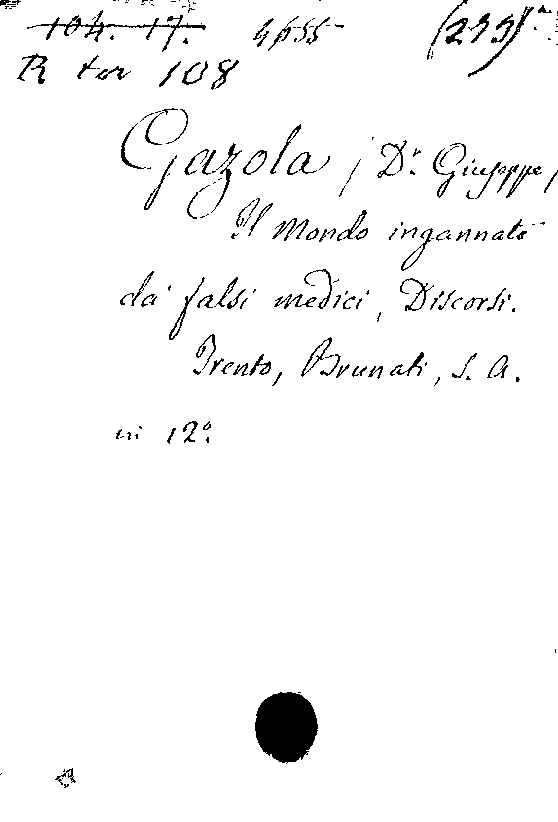 104. 17. 4655 (299)
R tm 108
Gazola, Dr. Giuseppe,
Il Mondo ingannato
da' falsi medici, Discorsi.
Trento, Brunati, S. A.
in 12°